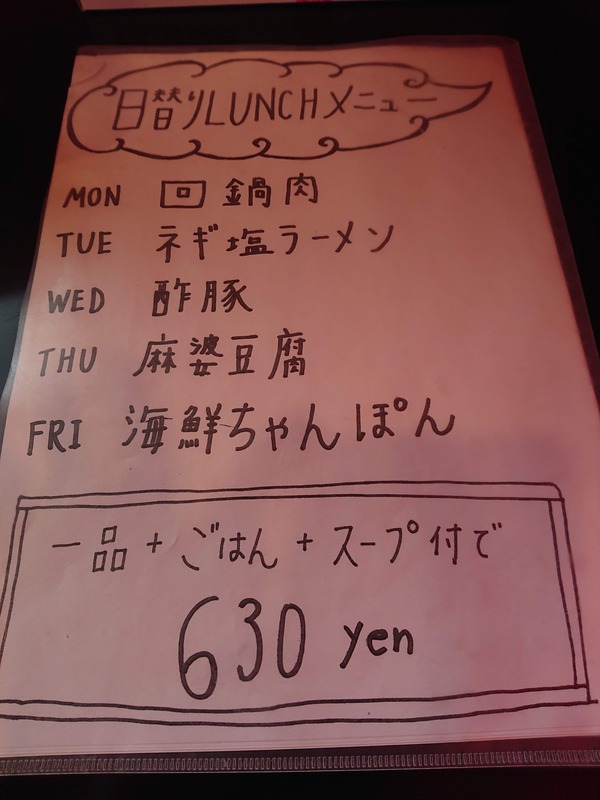 日替りLUNCHメニュー
MON 回鍋肉
TUE ネギ塩ラーメン
WED 酢豚
THU 麻婆豆腐
FRI 海鮮ちゃんぽん
一品+ごはん+スープ付で
630 yen